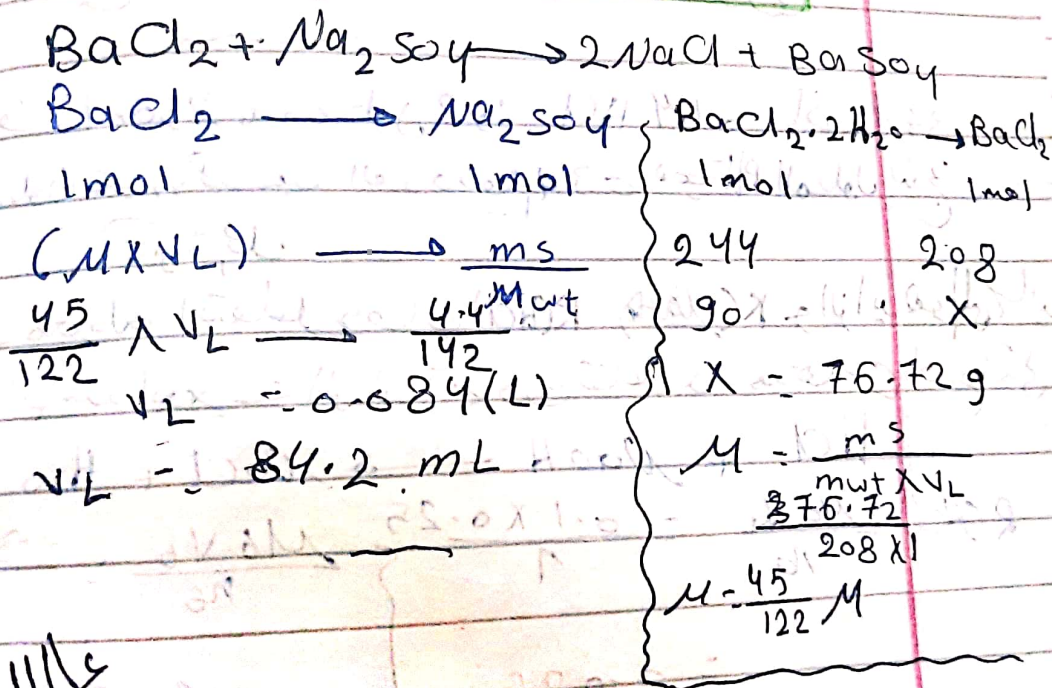 BaCl2 + Na2SO4 → 2NaCl + BaSO4
BaCl2 → Na2SO4
1mol 1mol
(M x VL) → ms / Mwt
45/122 x VL → 4.4/142
VL = 0.084(L)
VL = 84.2 mL
BaCl2.2H2O → BaCl2
1mol 1mol
244 208
90 X
X = 76.72 g
M = ms / mwt x VL
76.72 / 208 x 1
M = 45/122 M